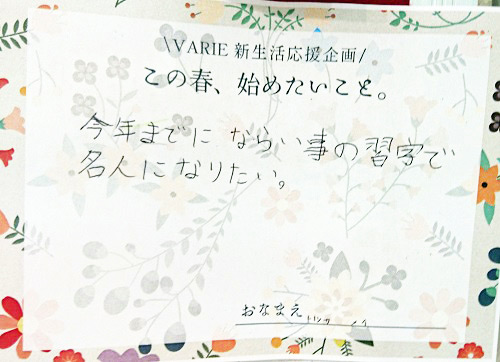 \VARIE 新生活応援企画/
この春、始めたいこと。
今年までに ならい事の習字で
名人になりたい。
おなまえ